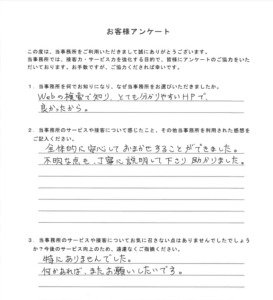 お客様アンケート
この度は、当事務所をご利用いただきまして誠にありがとうございます。
当事務所では、接客力・サービス力を強化する目的で、皆様にアンケートのご協力をいた
だいております。お手数ですが、ご協力くだされば幸いです。
1．当事務所を何でお知りになり、なぜ当事務所をお選びいただきましたか。
Webの検索で知り、とても分かりやすいHPで、
良かったから。
2．当事務所のサービスや接客について感じたこと、その他当事務所を利用された感想を
ご記入ください。
全体的に安心しておまかせすることができました。
不明な点も、丁寧に説明して下さり助かりました。
3．当事務所のサービスや接客についてお気に召さない点はありませんでしたでしょう
か？今後のサービス向上のため、遠慮なくご指摘ください。
特にありませんでした。
何かあれば、またお願いしたいです。